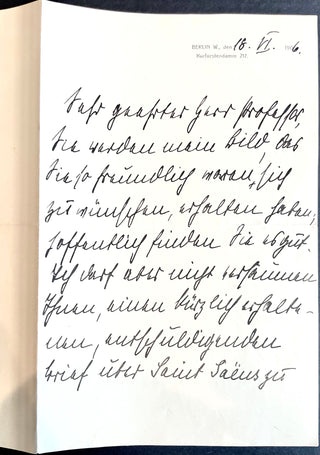 BERLIN W., den 18. VI. 1916.
Kurfürstendamm 217.
Sehr geehrter Herr Professor,
Sie werden mein Bild, das
Sie so freundlich waren, sich
zu wünschen, erhalten haben;
hoffentlich finden Sie es gut.
Ich darf aber nicht versäumen
Ihnen, einen kürzlich erhalte-
nen, entschuldigenden
Brief über Saint Saëns zu